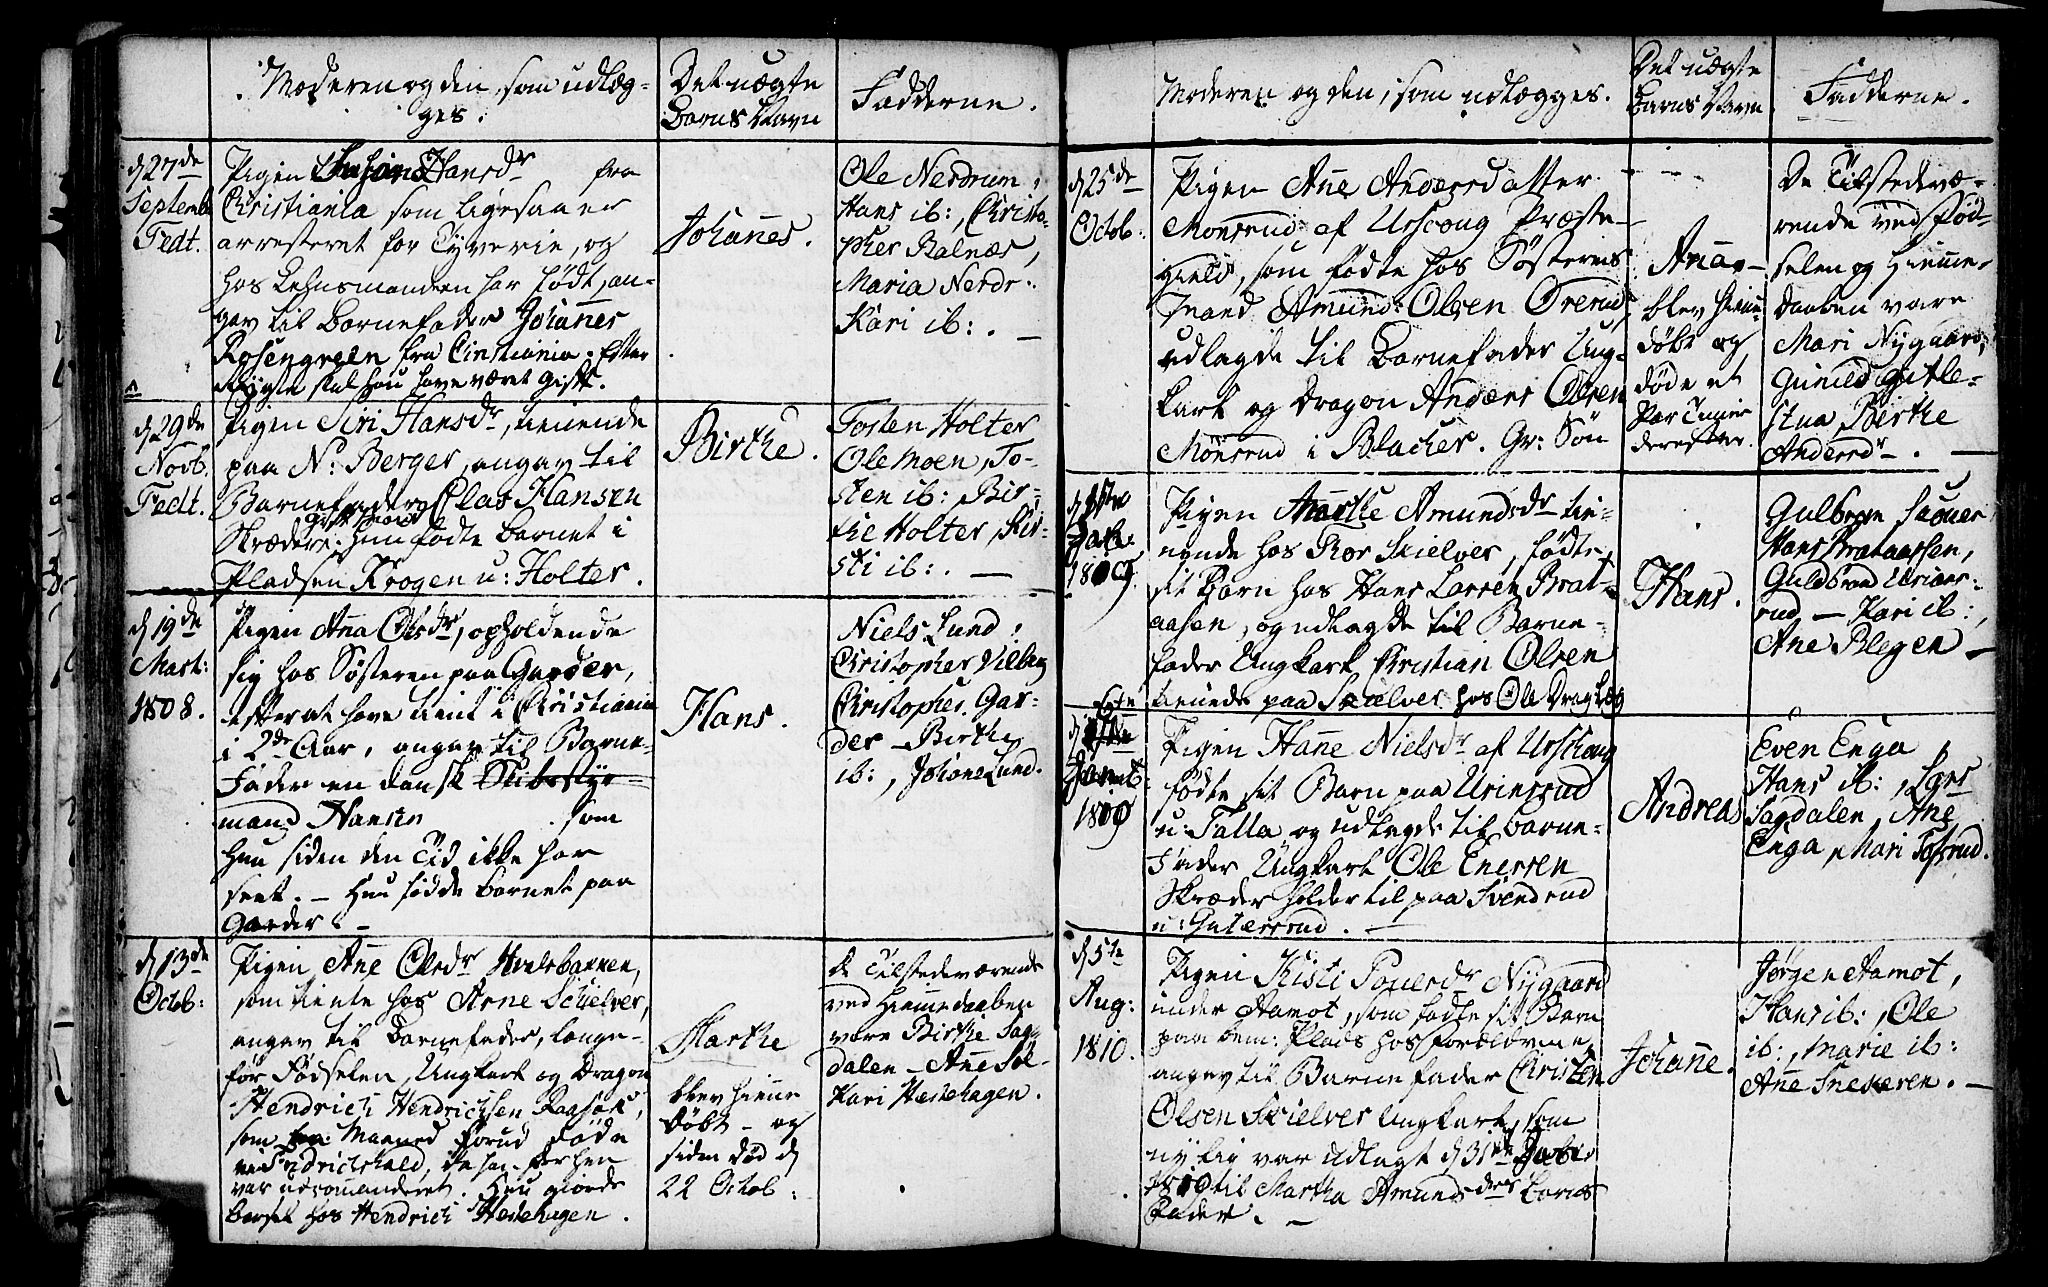 Moderen og den, som udlæg-
ges.
Det uægte
Barns Navn
Fadderne.
d 27de
Septemb
Fedt.
Pigen Hansdr fra
Christiania som ligesaa er
arresteret for Tyverie, og
hos Lehnsmanden har født, an-
gav til Barnefader Johannes
Rosengreen fra Christiania. Efter
Rÿgte skal hun have været gift.
Johannes.
Ole Nerdrum,
Hans ib:, Christo-
pher Balnæs,
Maria Nerdr:
Kari ib:.
d 29de
Novb.
Fedt.
Pigen Siri Hansdr, tienende
paa N: Berger, angav til
Barnefader Clas Hansen
Gift Mand
Skræder. Hun fødte Barnet i
Pladsen Krogen u: Holter.
Birthe.
Tosten Holter
Ole Moen, To-
sten ib:, Bir-
the Holter, Kir-
sti ib:.
d 19de
Mart:
1808.
Pigen Anna Olsdr, opholdende
sig hos Søsteren paa Garder,
efter at have tient i Christiania
i 2de Aar, angav til Barne-
Fader en dansk
mand Hansen som
hun siden den Tid ikke har
seet. - Hun fødde Barnet paa
Garder. -
Hans.
Niels Lund,
Christopher Vilberg
Christopher Gar-
der - Birthe
ib:, Johane Lund.
d 13de
Octob:
Pigen Ane Olsdr Hvalsbakken,
som tiente hos Arne Schielver,
angav til Barnefader, længe
før Fødselen, Ungkarl og Dragon
Hendrich Hendrichsen
som Maaned forud døde
i Fridrichshald, da han
var udcommanderet. Hun giorde
Barsel hos Hendrich Hestehagen.
Marthe
blev hieme
døbt - og
siden død d
22 Octob:
De Tilstedeværende
ved Hiemmedaaben
vare Birthe Sag-
dalen - Ane
Kari Hestehagen.
Moderen og den, som udlægges.
Det uægte
Barns Navn
Fadderne.
d 25de
Octob:
Pigen Ane Andersdatter
Monsrud af Urschoug Præste-
gield, som fødte hos Søsterens
Mand Amund Olsen Ørerud,
udlagde til Barnefader Ung-
karl og Dragon Anders Olsen
Mønsrud i Blacher. Gr: Søn
Anna
blev hieme
døbt og
døde et
Par Timer
derefter.
De Tilstedevæ-
rende ved Fød-
selen og Hieme-
daaben vare
Mari Nygaard,
Gunild Gutle-
stua, Birthe
Andersdr.
1809.
Pigen Marthe Amundsdr tie-
nende hos Roer Skielver, fødte
sit Barn hos Hans Larsen Brat-
aasen, og udlagde til Barne-
fader Ungkarl Christian Olsen
tienende paa Skielver hos Ole
Hans.
Gulbran
Hans Brataasen,
Guldbrand Urians-
rud - Kari ib:,
Ane Blegen
1809
Pigen Hanne Nielsdr af Urschoug
fødte sit Barn paa Urinsrud
u: Talla og udlagde til Barne-
Fader Ungkarl Ole Enersen
Skræder holder til paa Svendrud
u: Gutersrud.
Andreas
Even Enga,
Hans ib:, Lars
Sagdalen, Ane
Enga, Mari Tofsrud.
d 5te
Aug:
1810.
Pigen Kisti Povelsdr Nygaard
under Aamot, som fødte sit Barn
paa bem: Plads hos Forældrene,
angav til Barnefader Christen
Olsen Skielver Ungkarl, som
nylig var udlagt d 31te
til Martha Amundsdrs Barns
Fader. -
Johanne.
Jørgen Aamot,
Hans ib:, Ole
ib:, Marie ib:
Ane Snekeren. -